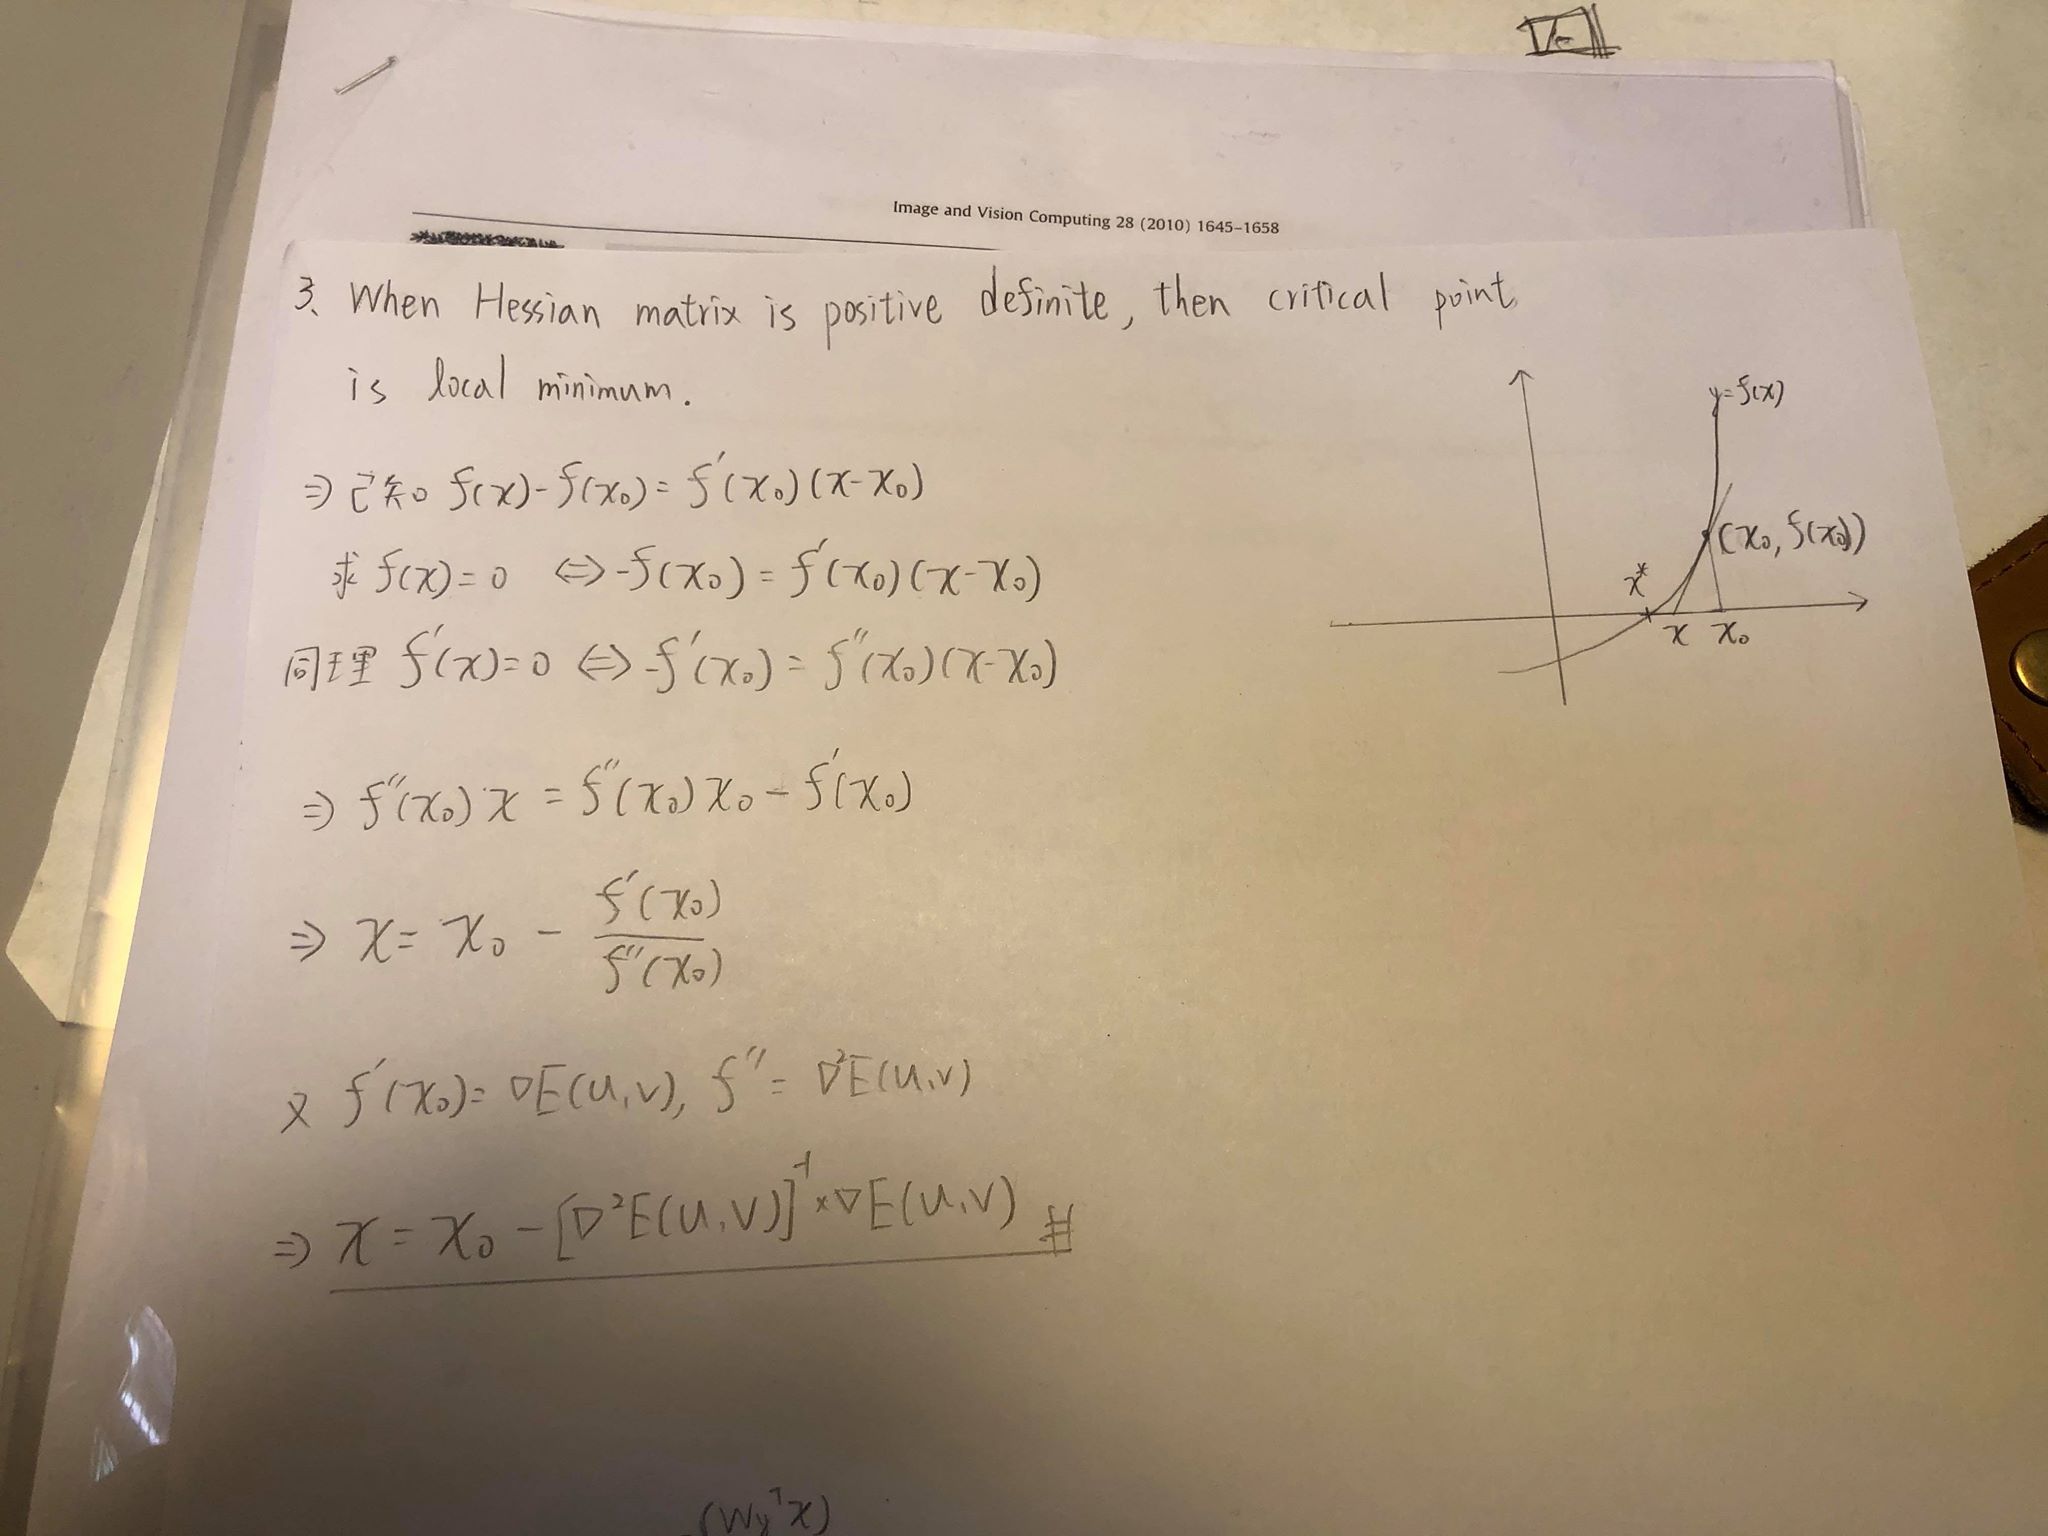 Image and Vision Computing 28 (2010) 1645–1658
3、When Hessian matrix is positive definite, then critical point
is local minimum.
y=f(x)
⇒ 已知 f(x)-f(x₀)= f′(x₀)(x-x₀)
(x₀, f(x₀))
求 f(x)=0 ⇔ -f(x₀) = f′(x₀)(x-x₀)
x*
x x₀
同理 f′(x)=0 ⇔ -f′(x₀) = f″(x₀)(x-x₀)
⇒ f″(x₀)·x = f″(x₀)x₀ - f′(x₀)
⇒ x = x₀ - f′(x₀)/f″(x₀)
又 f′(x₀)= ∇E(u,v), f″ = ∇²E(u,v)
⇒ x = x₀ - [∇²E(u,v)]⁻¹×∇E(u,v) #
(Wy⊤x)